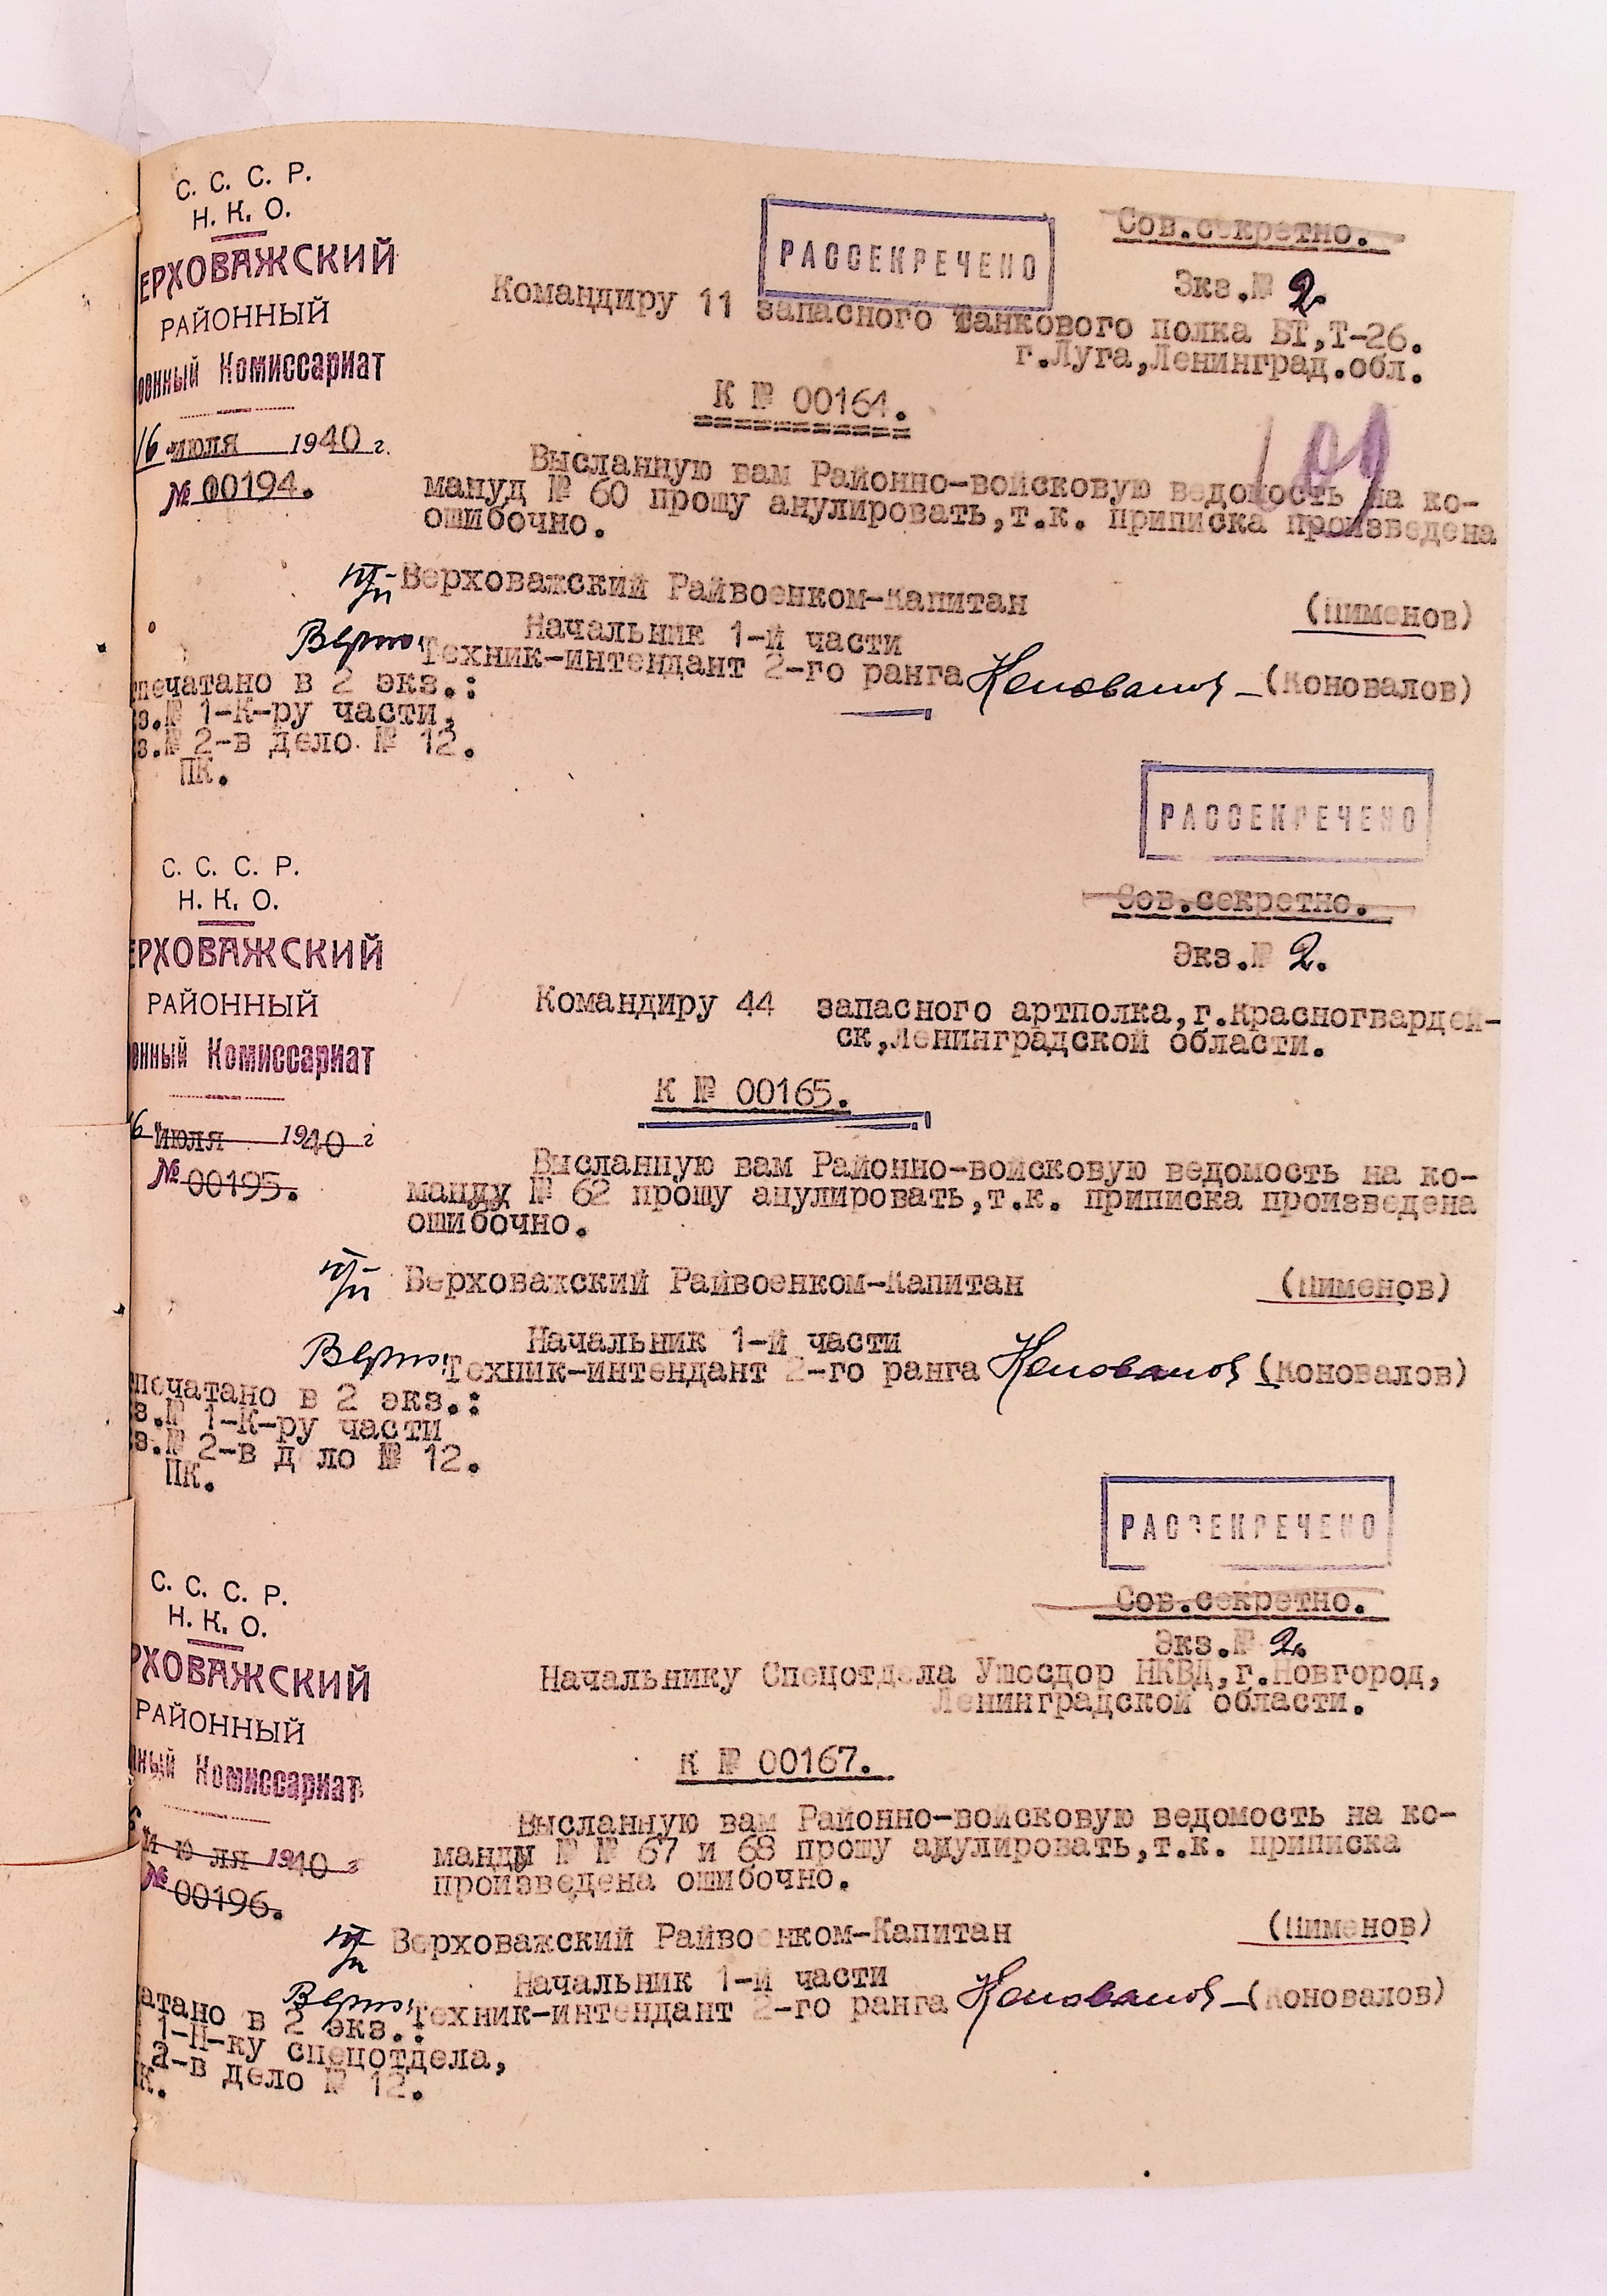 С. С. С. Р.
Н. К. О.
ЕРХОВАЖСКИЙ
РАЙОННЫЙ
оенный Комиссариат
16 июля 1940 г.
№ 00194.
РАССЕКРЕЧЕНО
Сов.секретно.
Экз.№ 2.
Командиру 11 запасного танкового полка БТ,Т-26.
г.Луга,Ленинград.обл.
К № 00164.
109
Высланную вам Районно-войсковую ведомость на ко-
мануд № 60 прошу анулировать,т.к. приписка произведена
ошибочно.
Верховажский Райвоенком-Капитан (Пименов)
Начальник 1-й части
Верно: Техник-интендант 2-го ранга Коновалов (Коновалов)
печатано в 2 экз.:
з.№ 1-К-ру части,
з.№ 2-в дело № 12.
ПК.
С. С. С. Р.
Н. К. О.
ЕРХОВАЖСКИЙ
РАЙОННЫЙ
онный Комиссариат
6 июля 1940 г
№ 00195.
РАССЕКРЕЧЕНО
Сов.секретно.
Экз.№ 2.
Командиру 44 запасного артполка,г.Красногвардей-
ск,Ленинградской области.
К № 00165.
Высланную вам Районно-войсковую ведомость на ко-
манду № 62 прошу анулировать,т.к. приписка произведена
ошибочно.
Верховажский Райвоенком-Капитан (Пименов)
Начальник 1-й части
Верно: Техник-интендант 2-го ранга Коновалов (Коновалов)
печатано в 2 экз.:
з.№ 1-К-ру части
з.№ 2-в д ло № 12.
ПК.
С. С. С. Р.
Н. К. О.
РХОВАЖСКИЙ
РАЙОННЫЙ
нный Комиссариат
6
июля 1940 г
№ 00196.
РАССЕКРЕЧЕНО
Сов.секретно.
Экз.№ 2.
Начальнику Спецотдела Ушосдор НКВД,г.Новгород,
Ленинградской области.
К № 00167.
Высланную вам Районно-войсковую ведомость на ко-
манды № № 67 и 68 прошу анулировать,т.к. приписка
произведена ошибочно.
Верховажский Райвоенком-Капитан (Пименов)
Начальник 1-й части
Верно: Техник-интендант 2-го ранга Коновалов (Коновалов)
атано в 2 экз.:
1-Н-ку спецотдела,
2-в дело № 12.
К.